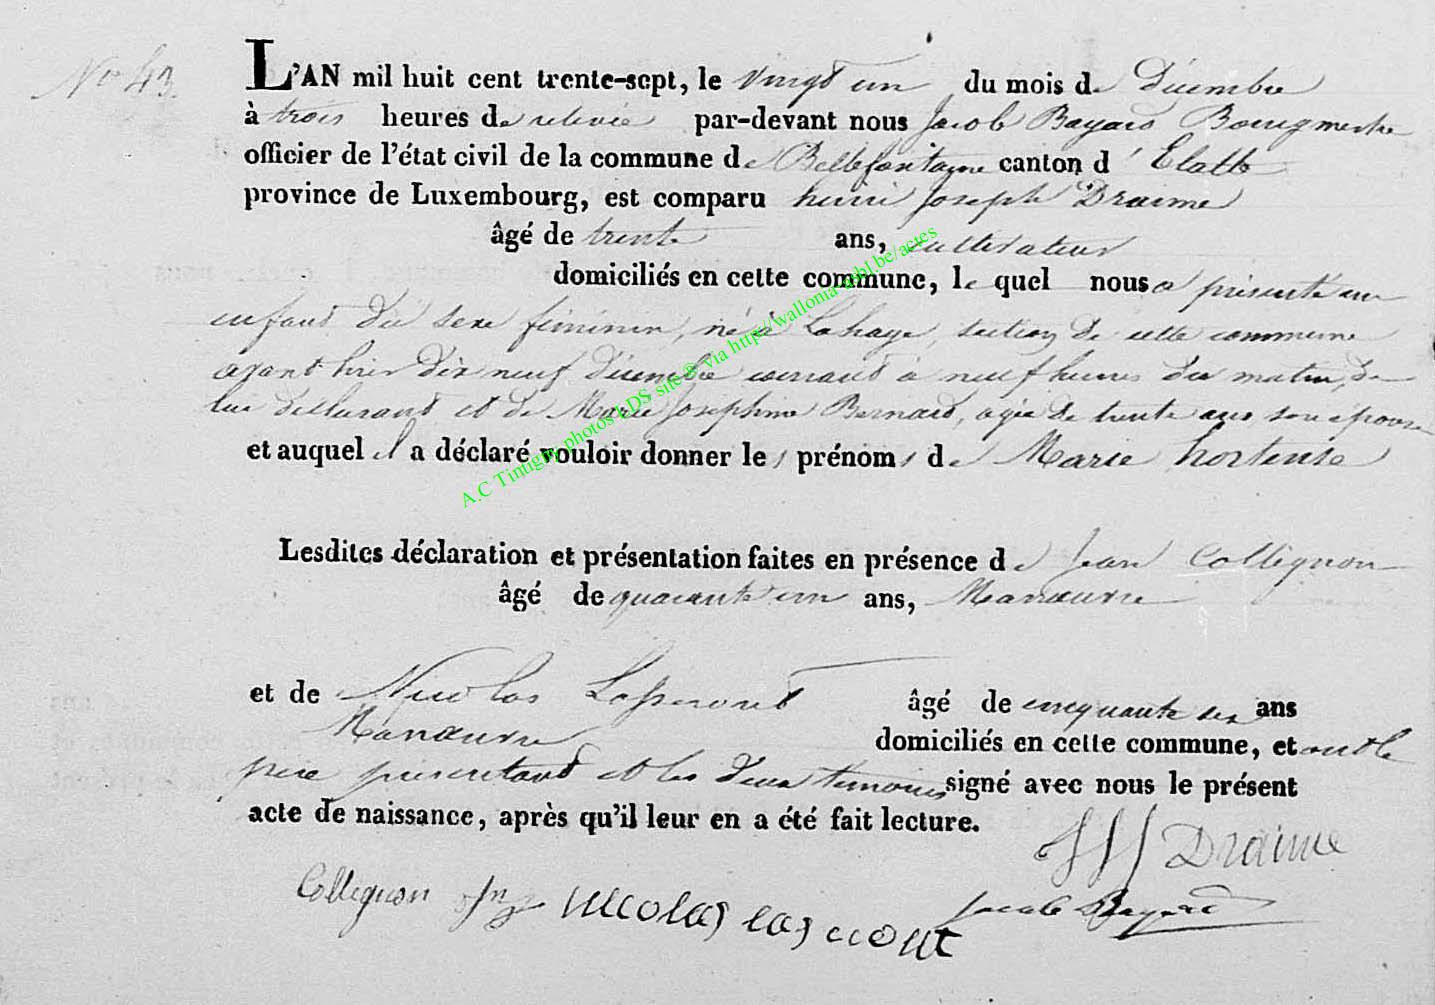 No 43.
L'AN mil huit cent trente-sept, le vingt un du mois de Décembre
à trois heures de relevée par-devant nous Jacob Bayard Bourgmestre
officier de l'état civil de la commune de Bellefontaine canton d'Etalle
province de Luxembourg, est comparu henri Joseph Draime
âgé de trente ans, cultivateur
domiciliés en cette commune, le quel nous a présenté un
enfant du sexe féminin, né à Lahage, section de cette commune
avant hier dix neuf décembre courant à neuf heures du matin, de
lui déclarant et de Marie Joséphine Bernard, agée de trente ans, son épouse
et auquel il a déclaré vouloir donner les prénoms de Marie hortense
Lesdites déclaration et présentation faites en présence de Jean Collignon
âgé de quarante un ans, Manœuvre
et de Nicolas Lasseront âgé de cinquante six ans
Manœuvre domiciliés en cette commune, et ont le
père présentant et les deux témoins signé avec nous le présent
acte de naissance, après qu'il leur en a été fait lecture.
HJ Draime
Collignon Jn nicolas Jacob Bayard
A.C Tintigny photos LDS site ® via http://wallonia-asbl.be/actes